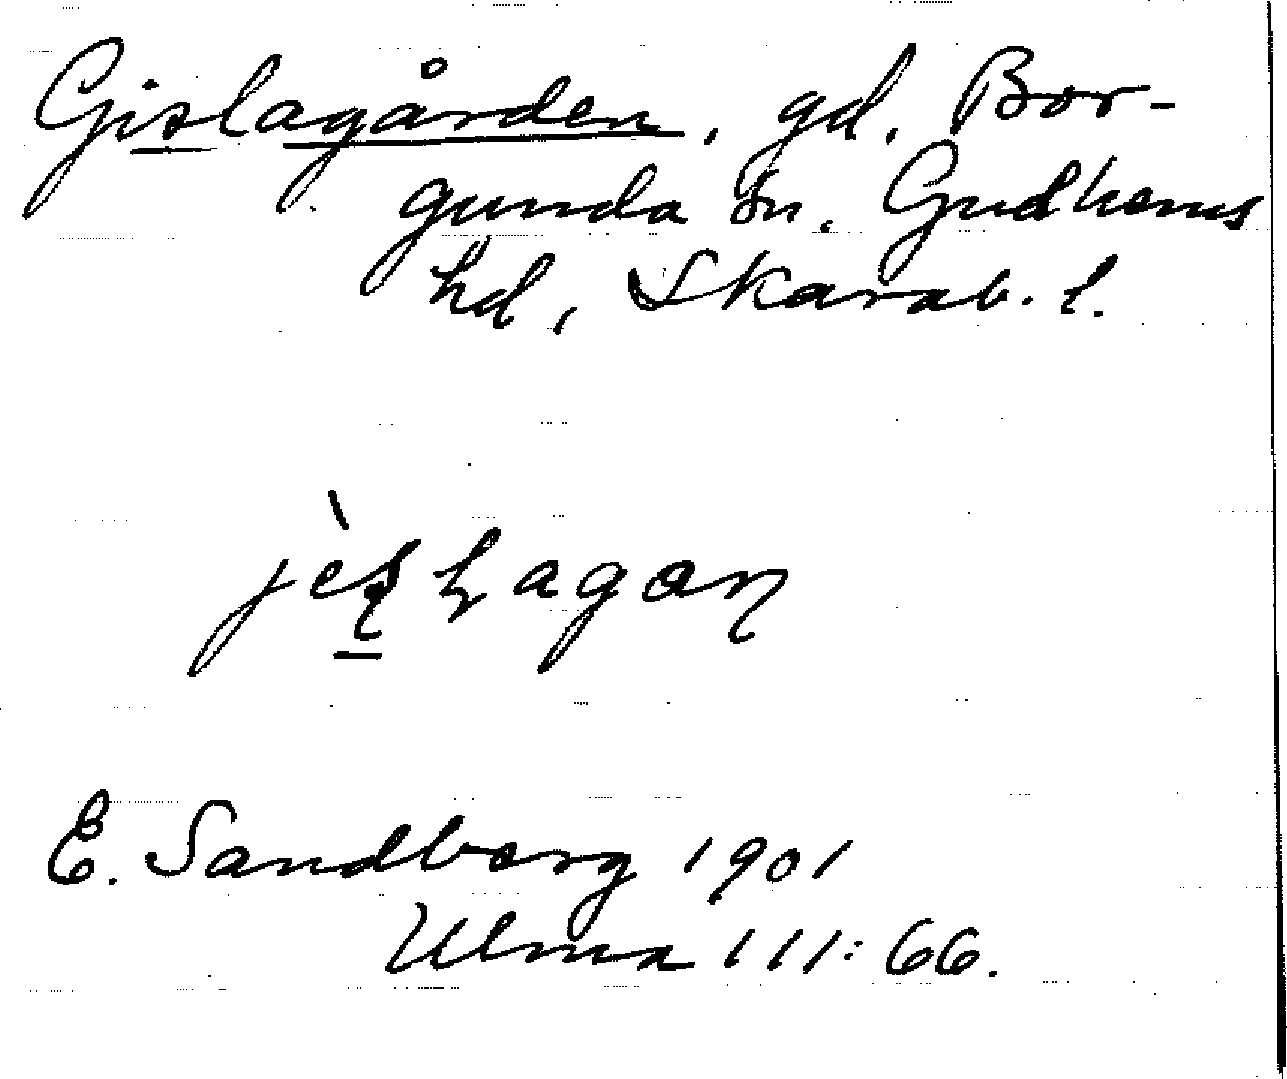 Gislagården, gd, Bor-
gunda sn. Gudhems
hd, Skarab. l.
E. Sandberg 1901
Ulma 111:66.